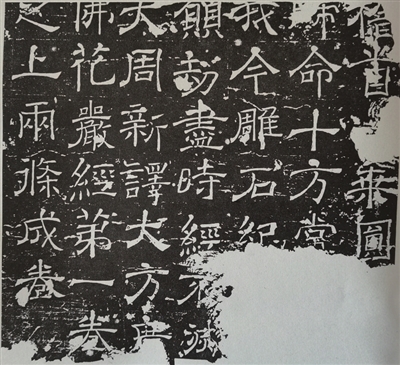 乘圓
歸命十方常
我今雕石紀
願劫盡時經不滅
大周新譯大方廣
佛花嚴經第一卷
之上兩條成卷